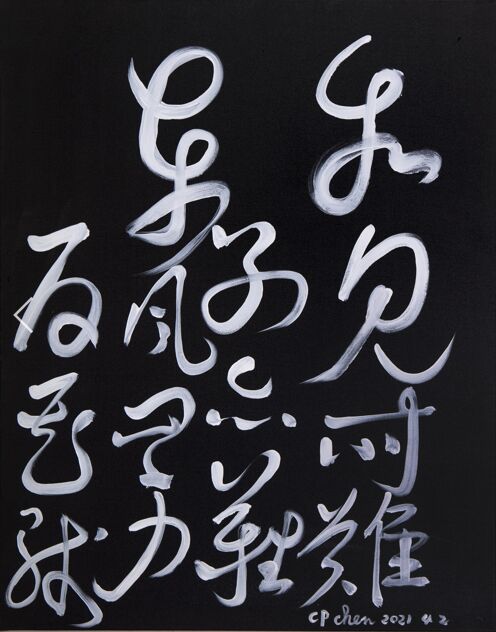 相見時難
別亦難
東風無力
百花殘
CP chen 2021 4 2